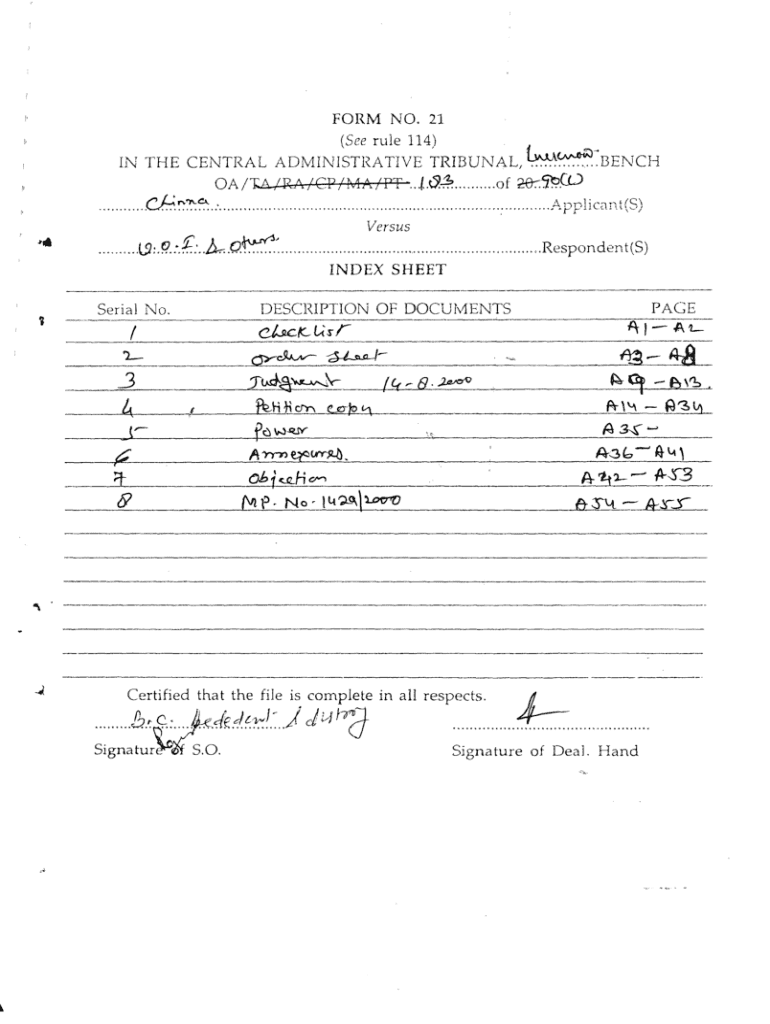 FORM NO. 21
(See rule 114)
IN THE CENTRAL ADMINISTRATIVE TRIBUNAL, Lucknow BENCH
OA/TA/RA/CP/MA/PT 183 of 20 90(L)
Chinna. Applicant(S)
Versus
U.O.I. & Others. Respondent(S)
INDEX SHEET
Serial No. DESCRIPTION OF DOCUMENTS PAGE
1 Check List A1 – A2
2 Order Sheet A3 – A8
3 Judgment 14-8-2000 A9 – A13.
4 Petition copy A14 – A34
5 Power A35 –
6 Annexures. A36 – A41
7 Objection A42 – A53
8 MP. No. 1429/2000 A54 – A55
Certified that the file is complete in all respects.
B.C.
Signature of S.O. Signature of Deal. Hand